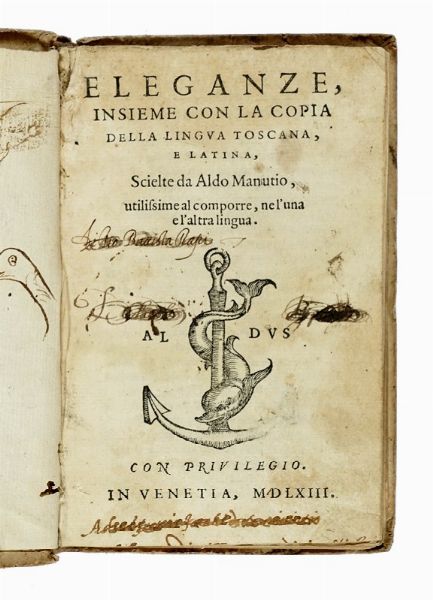 ELEGANZE,
INSIEME CON LA COPIA
DELLA LINGVA TOSCANA,
E LATINA,
Scielte da Aldo Manutio,
utilissime al comporre, ne l'una
e l'altra lingua.
Batista
AL DVS
CON PRIVILEGIO.
IN VENETIA, MDLXIII.